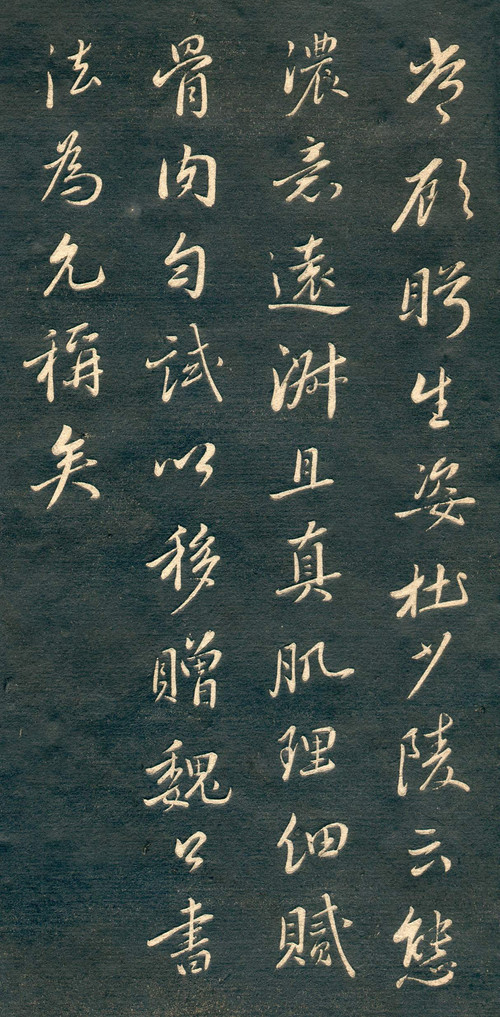 顧眄生姿杜少陵云態
濃意遠淑且真肌理細膩
骨肉勻試以移贈魏公書
法為允稱矣